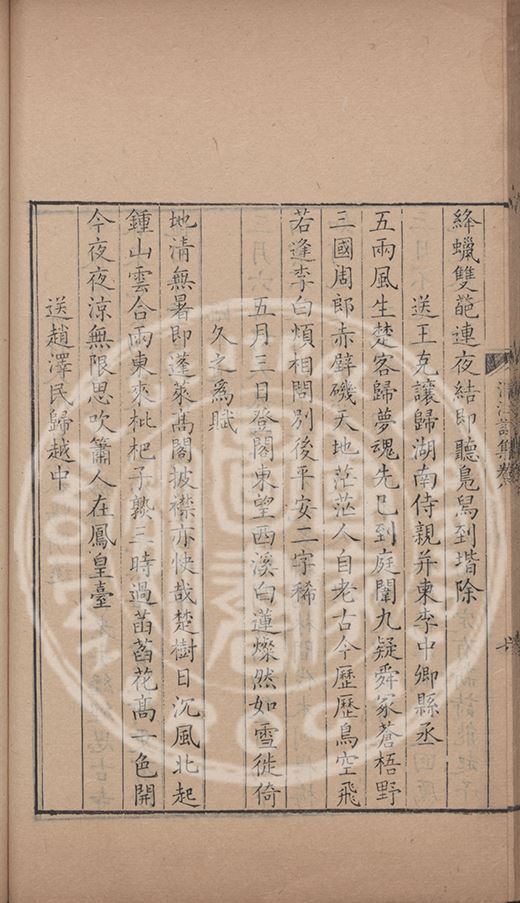 絳蠟雙葩連夜結即聽鳧舄到堦除
送王克讓歸湖南侍親并柬李中卿縣丞
五兩風生楚客歸夢魂先已到庭闈九疑舜冢蒼梧野
三國周郎赤壁磯天地茫茫人自老古今歷歷鳥空飛
若逢李白煩相問別後平安二字稀
五月三日登閣東望西溪白蓮燦然如雪徙倚
久之爲賦
地清無暑即蓬萊高閣披襟亦快哉楚樹日沉風北起
鍾山雲合雨東來枇杷子熟三時過菡萏花髙一色開
今夜夜涼無限思吹簫人在鳳皇臺
送趙澤民歸越中